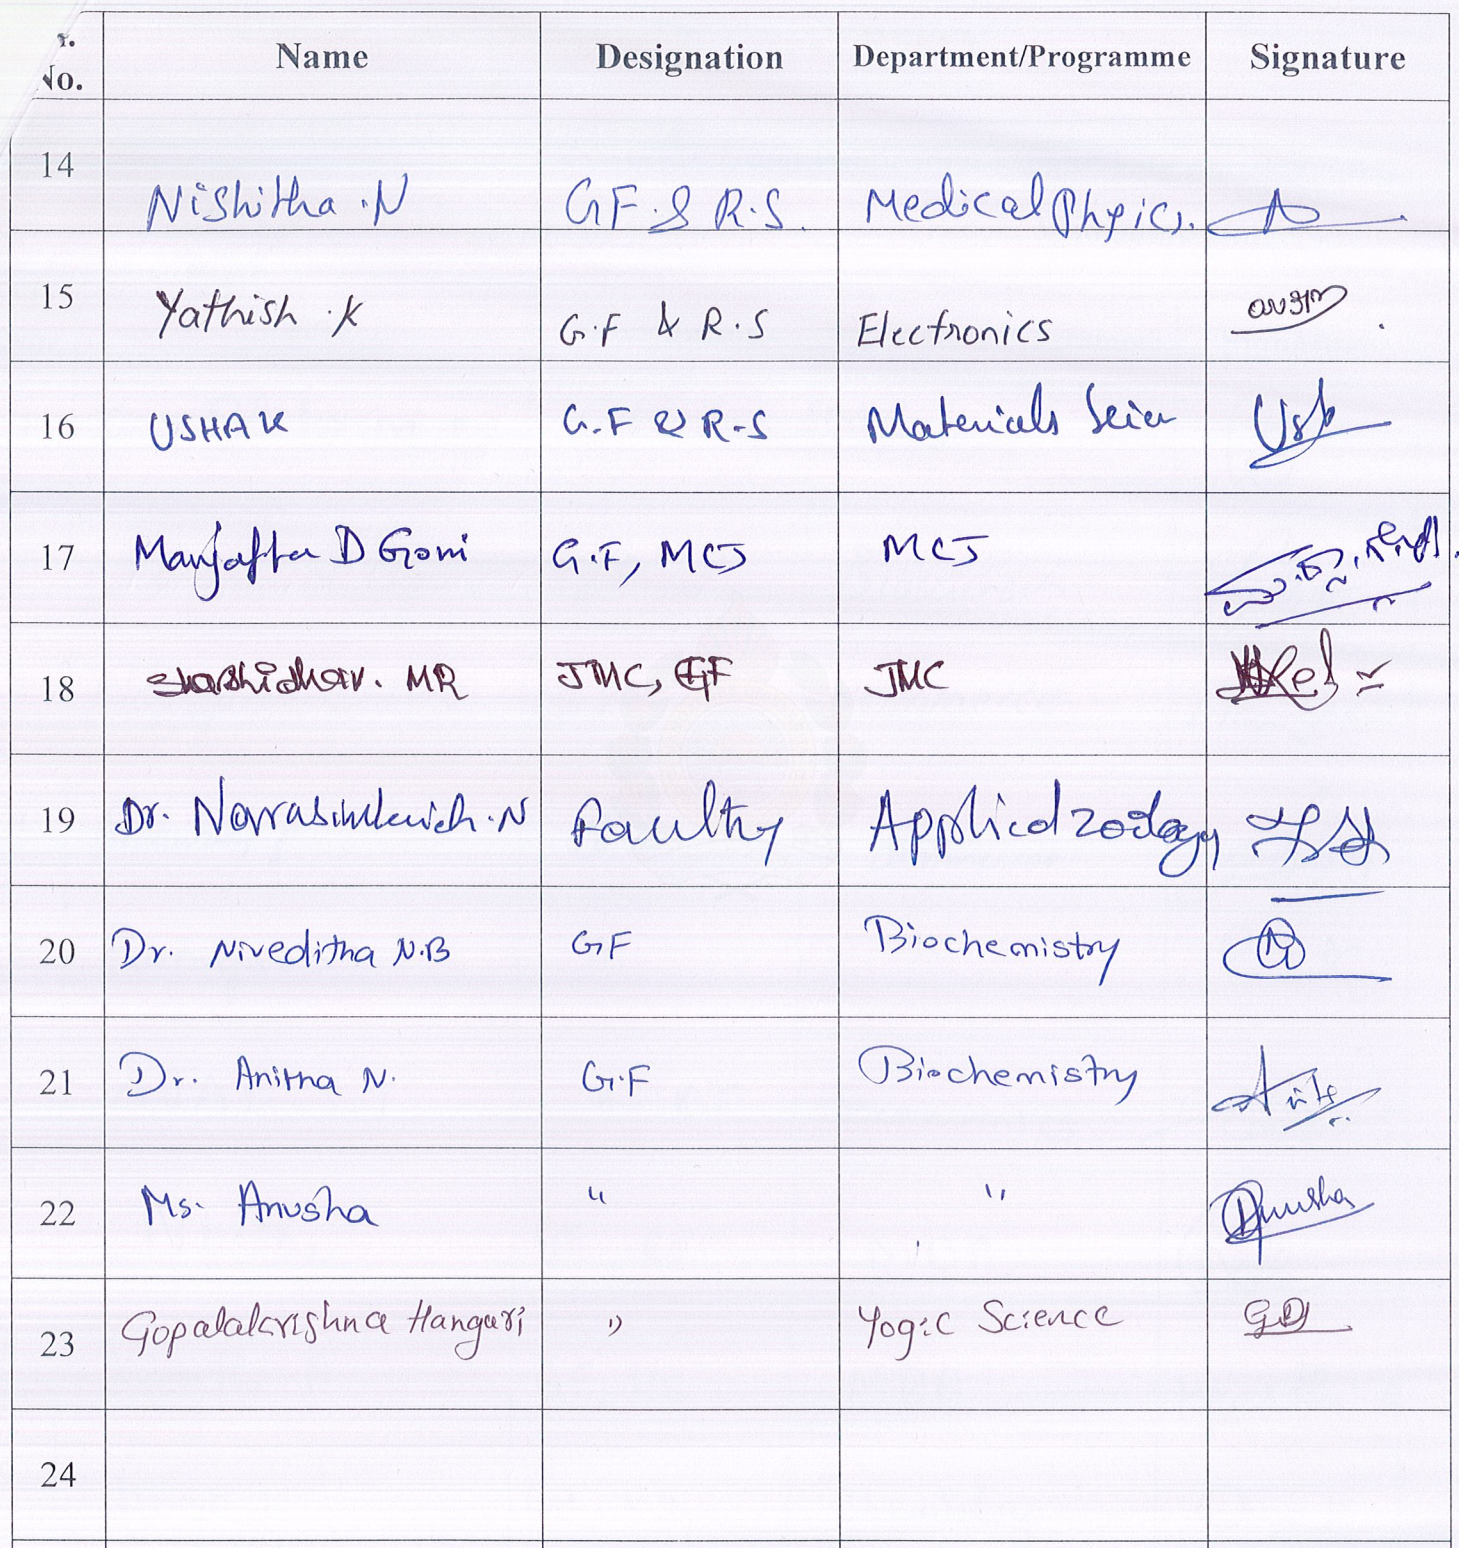 r. No. Name Designation Department/Programme Signature
14 Nishitha .N GF & R.S. Medical Physics.
15 Yathish .K G.F & R.S Electronics
16 USHA K G.F & R-S Materials Scien Ush
17 Manjappa D Goni G.F, MCJ MCJ
18 Shashidhar. MR JMC, GF JMC
19 Dr. N Faculty Applied zoology
20 Dr. Niveditha N.B GF Biochemistry
21 Dr. Anitha N. G.F Biochemistry
22 Ms. Anusha " " Anusha
23 Gopalakrishna Hanguri " Yogic Science
24